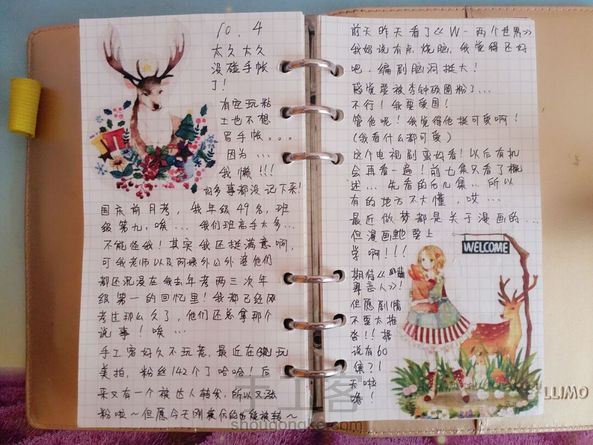 10.4
太久太久
没碰手帐
了！
有空玩贴
土也不想
写手帐。。。
因为...
我懒!!!
好多事都没记下来!
国庆前月考，我年级49名，班
级第九，唉... 我们班高手太多...
不能怪我！其实我还挺满意啊，
可我老师以及阿姨外公外婆他们
都还沉浸在我去年考两三次年
级第一的回忆里！我都已经两
考过那么久了，他们还总拿那个
说事！唉...
手工客好久不玩惹，最近在玩
美拍，粉丝142个了哈哈！后
来又有一个被达人转发，所以又涨
粉啦～但愿今天刚发的也能被转～
前天昨天看了《W-两个世界》
我妈说有点烧脑，我觉得还好
吧，编剧脑洞挺大！
感觉要被李钟硕圈粉了...
不行！我要爱国！
管他呢！我觉得他挺可爱啊！
(我看什么都可爱)
这个电视剧蛮好看！以后有机
会再看一遍！前七集只看了概
述... 先看的后几集... 所以
有的地方不太懂，哎...
最近做梦都是关于漫画的...
但漫画她要上
学啊!!!
期待《
界恋人》!
但愿剧情
不要太拖
沓!! 据
说有60
集?!
天啦
噜！
WELCOME
手工客
shougongke.com
LLIMO